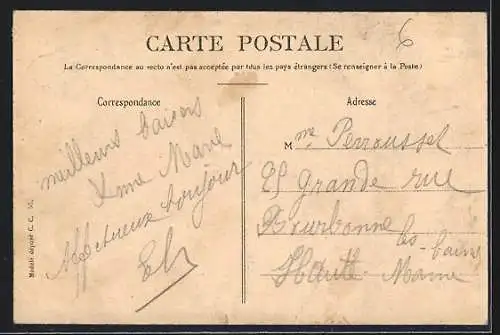 6
CARTE POSTALE
La Correspondance au recto n'est pas acceptée par tous les pays étrangers (Se renseigner à la Poste)
Correspondance
meilleurs baisers
Marie
Affectueux bonjour
Adresse
Mme Perrousset
grande rue
Bourbonne
les-bains
Haute Marne
Modèle déposé C. C.